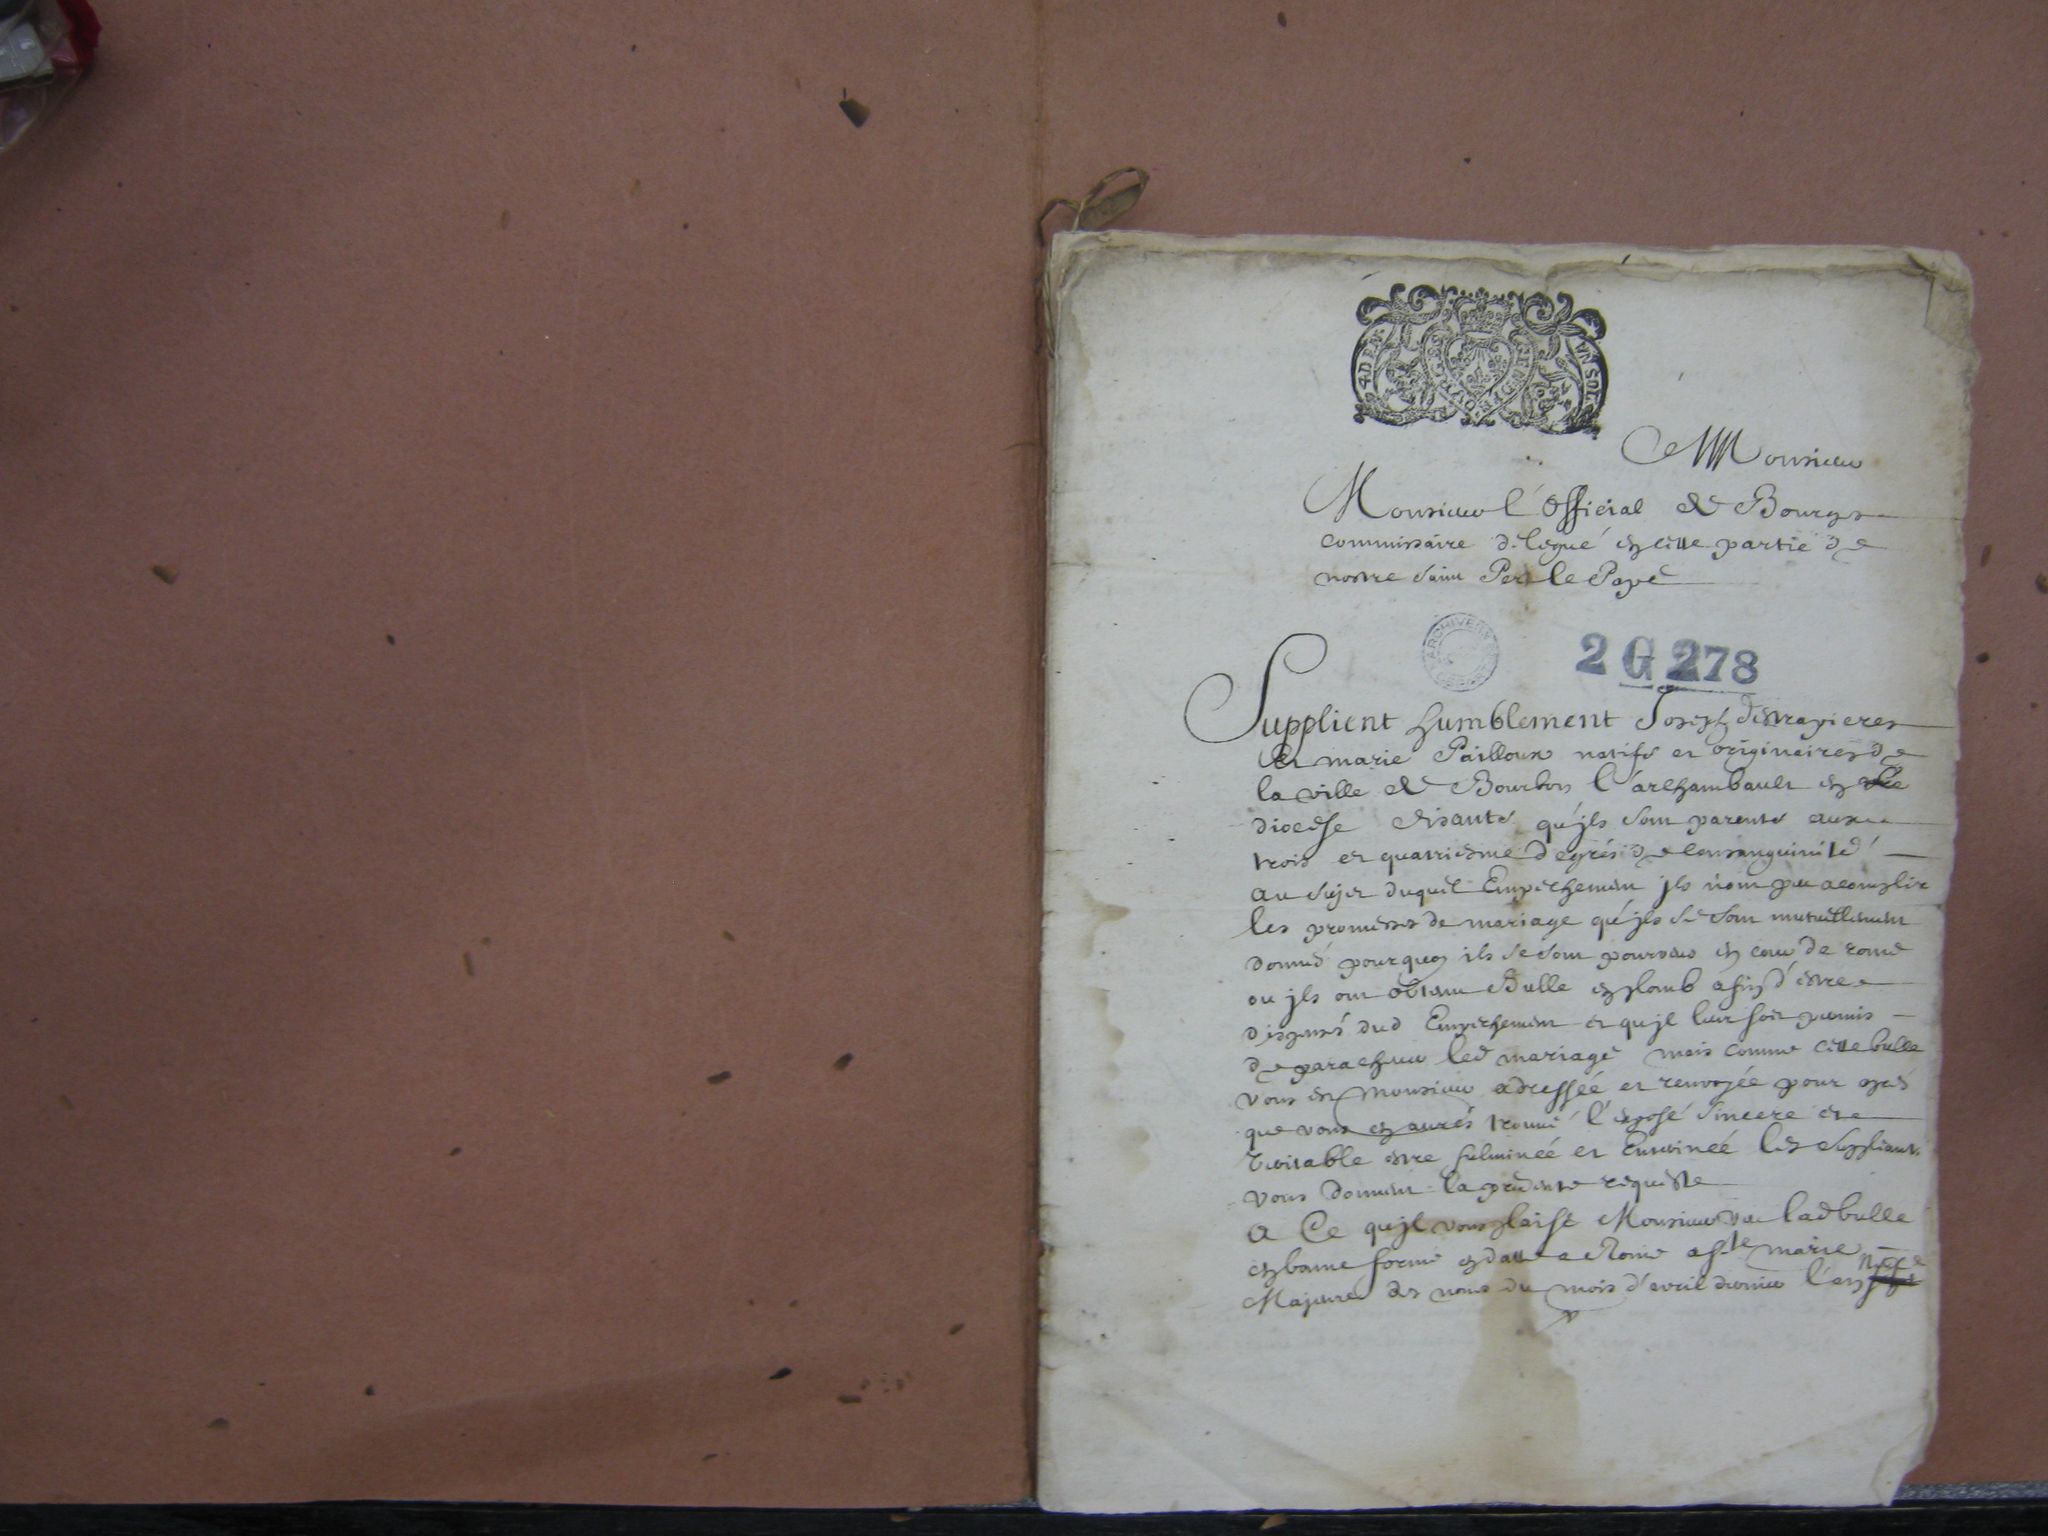 Monsieur
Monsieur l'Official de Bourges
commissaire delegué en cette partie de
nostre saint Pere le Pape
2 G 278
Supplient humblement Joseph
et marie Pailloux natifs et originaires de
la ville de Bourbon l'archambault en
diocese disants qu'jls sont parents aux
trois et quatriesme degrés de consanguinité
au sujet duquel Empeschement jls n'ont peu acomplir
les promesses de mariage qu'jls se sont mutuellement
donné pourquoy ils se sont pourveus en cour de rome
ou jls ont obtenu Bulle en plomb afin d'estre
dispensés dud Empeschement et qu'jl leur soit permis
de parachever led mariage mais comme cette bulle
vous est Monsieur adressée et renvoyée pour
que vous en aurés trouvé l'exposé sincere et
veritable estre fulminée et Enterinée les suppliants
vous donnent la presente requeste
A Ce qu'jl vous plaise Monsieur veu lad bulle
en bonne forme en datte a Rome a ste marie
Majeure des nones du mois d'avril dernier l'an